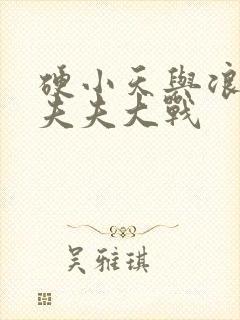 硬小天與浪
夫夫大戰
吴雅琪